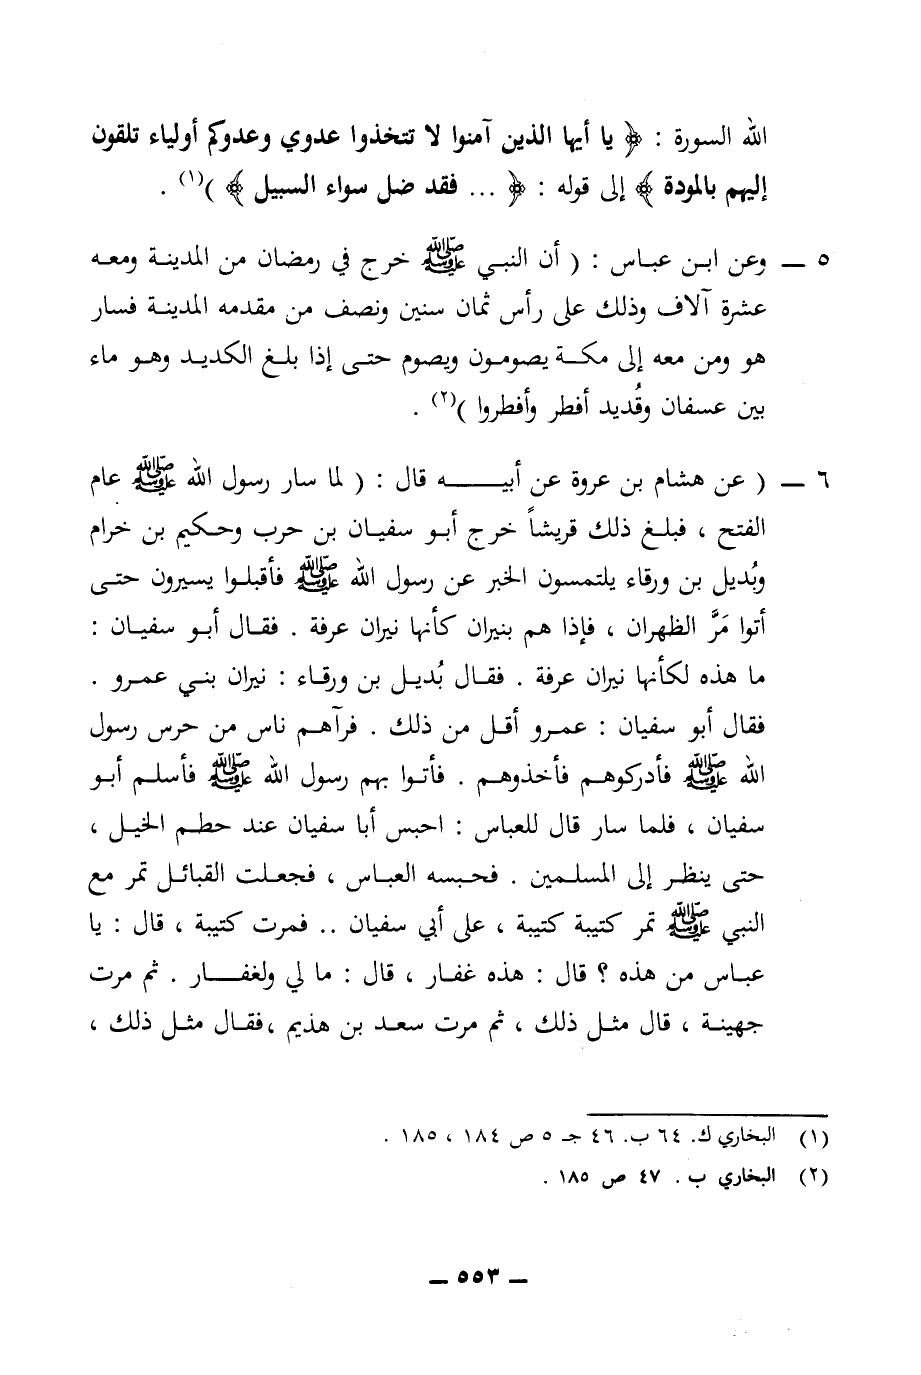 الله السورة : ﴿ يا أيها الذين آمنوا لا تتخذوا عدوي وعدوكم أولياء تلقون
إليهم بالمودة ﴾ إلى قوله : ﴿ ... فقد ضل سواء السبيل ﴾ )(١) .
٥ ــ وعن ابـن عبـاس : ( أن النبـي ﷺ خرج في رمضان من المدينـة ومعـه
عشرة آلاف وذلك على رأس ثمان سنين ونصف من مقدمه المدينـة فسار
هو ومن معه إلى مكـة يصومـون ويصوم حتـى إذا بلـغ الكديـد وهـو ماء
بين عسفان وقُديد أفطر وأفطروا )(٢) .
٦ ــ ( عن هشام بن عروة عن أبيـــــه قال : ( لما سار رسول الله ﷺ عام
الفتح ، فبلـغ ذلك قريشاً خرج أبـو سفيـان بن حرب وحكيم بن خرام
وبُديل بن ورقاء يلتمسون الخبر عن رسول الله ﷺ فأقبلـوا يسيرون حتـى
أتوا مَرَّ الظهران ، فإذا هم بنيران كأنها نيران عرفة . فقـال أبـو سفيـان :
ما هذه لكأنها نيران عرفة . فقـال بُديـل بن ورقـاء : نيران بنـي عمـرو .
فقال أبو سفيان : عمـرو أقـل من ذلك . فرآهـم ناس من حرس رسول
الله ﷺ فأدركوهـم فأخذوهـم . فأتـوا بهم رسول الله ﷺ فأسلـم أبـو
سفيـان ، فلمـا سار قال للعباس : احبس أبـا سفيـان عنـد حطـم الخيـل ،
حتـى ينظـر إلى المسلـمين . فحبسـه العبـاس ، فجعلـت القبائـل تمر مع
النبي ﷺ تمر كتيبة كتيبة ، على أبي سفيان .. فمرت كتيبة ، قال : يا
عبـاس من هذه ؟ قال : هذه غفـار ، قال : ما لي ولغفـــار . ثم مرت
جهينـة ، قال مثـل ذلك ، ثم مرت سعـد بن هذيم ،فقـال مثـل ذلك ،
(١) البخاري ك. ٦٤ ب. ٤٦ جـ ٥ ص ١٨٤ ، ١٨٥ .
(٢) البخاري ب . ٤٧ ص ١٨٥ .
ــ ٥٥٣ ــ